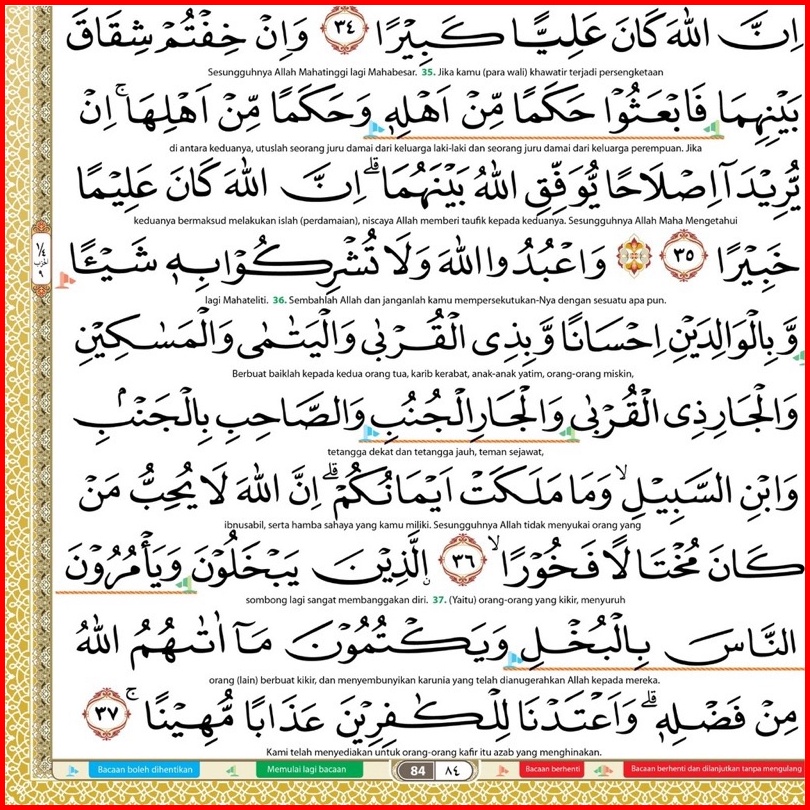 اِنَّ اللّٰهَ كَانَ عَلِيًّا كَبِيْرًا ﴿٣٤﴾ وَاِنْ خِفْتُمْ شِقَاقَ
Sesungguhnya Allah Mahatinggi lagi Mahabesar. 35. Jika kamu (para wali) khawatir terjadi persengketaan
بَيْنِهِمَا فَابْعَثُوْا حَكَمًا مِّنْ اَهْلِهٖ وَحَكَمًا مِّنْ اَهْلِهَا ۚ اِنْ
di antara keduanya, utuslah seorang juru damai dari keluarga laki-laki dan seorang juru damai dari keluarga perempuan. Jika
يُّرِيْدَآ اِصْلَاحًا يُّوَفِّقِ اللّٰهُ بَيْنَهُمَا ۗ اِنَّ اللّٰهَ كَانَ عَلِيْمًا
keduanya bermaksud melakukan islah (perdamaian), niscaya Allah memberi taufik kepada keduanya. Sesungguhnya Allah Maha Mengetahui
خَبِيْرًا ﴿٣٥﴾ وَاعْبُدُوا اللّٰهَ وَلَا تُشْرِكُوْا بِهٖ شَيْـًٔا
¼ الحزب ٩
lagi Mahateliti. 36. Sembahlah Allah dan janganlah kamu mempersekutukan-Nya dengan sesuatu apa pun.
وَّبِالْوَالِدَيْنِ اِحْسَانًا وَّبِذِى الْقُرْبٰى وَالْيَتٰمٰى وَالْمَسٰكِيْنِ
Berbuat baiklah kepada kedua orang tua, karib kerabat, anak-anak yatim, orang-orang miskin,
وَالْجَارِ ذِى الْقُرْبٰى وَالْجَارِ الْجُنُبِ وَالصَّاحِبِ بِالْجَنْۢبِ
tetangga dekat dan tetangga jauh, teman sejawat,
وَابْنِ السَّبِيْلِ ۙ وَمَا مَلَكَتْ اَيْمَانُكُمْ ۗ اِنَّ اللّٰهَ لَا يُحِبُّ مَنْ
ibnusabil, serta hamba sahaya yang kamu miliki. Sesungguhnya Allah tidak menyukai orang yang
كَانَ مُخْتَالًا فَخُوْرًا ۙ ﴿٣٦﴾ ۨالَّذِيْنَ يَبْخَلُوْنَ وَيَأْمُرُوْنَ
sombong lagi sangat membanggakan diri. 37. (Yaitu) orang-orang yang kikir, menyuruh
النَّاسَ بِالْبُخْلِ وَيَكْتُمُوْنَ مَآ اٰتٰىهُمُ اللّٰهُ
orang (lain) berbuat kikir, dan menyembunyikan karunia yang telah dianugerahkan Allah kepada mereka.
مِنْ فَضْلِهٖ ۗ وَاَعْتَدْنَا لِلْكٰفِرِيْنَ عَذَابًا مُّهِيْنًا ۚ ﴿٣٧﴾
Kami telah menyediakan untuk orang-orang kafir itu azab yang menghinakan.
Bacaan boleh dihentikan Memulai lagi bacaan 84 ٨٤ Bacaan berhenti Bacaan berhenti dan dilanjutkan tanpa mengulang